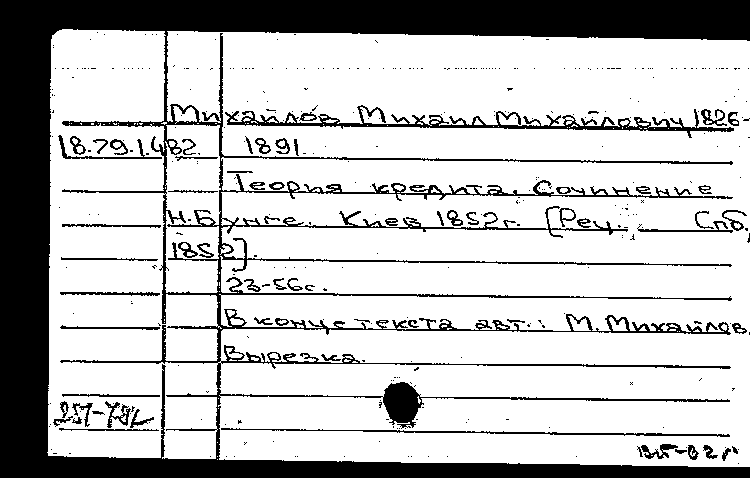 Михайлов, Михаил Михайлович, 1826-
18.79.1.482 1891
Теория кредита. Сочинение
Н.Бунге. Киев, 1852г. [Рец. Спб,
1852].
23-56с.
В конце текста авт.: М.Михайлов.
Вырезка.